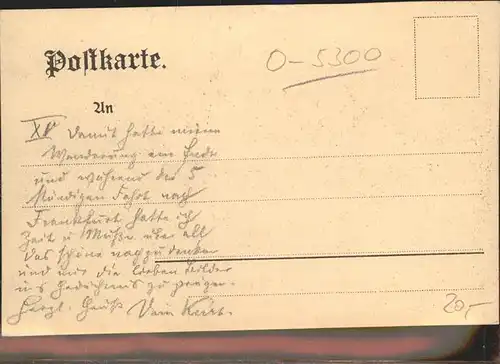 Postkarte.
O-5300
An
XV Damit hatte meine
Wanderung ein Ende
und während der 5
stündigen Fahrt nach
Frankfurt hatte ich
Zeit u Muße über all
das schöne nachzudenken
und mir die lieben Bilder
ins Gedächtnis zu prägen.
Herzl. Gruß Dein Kurt.
20,-